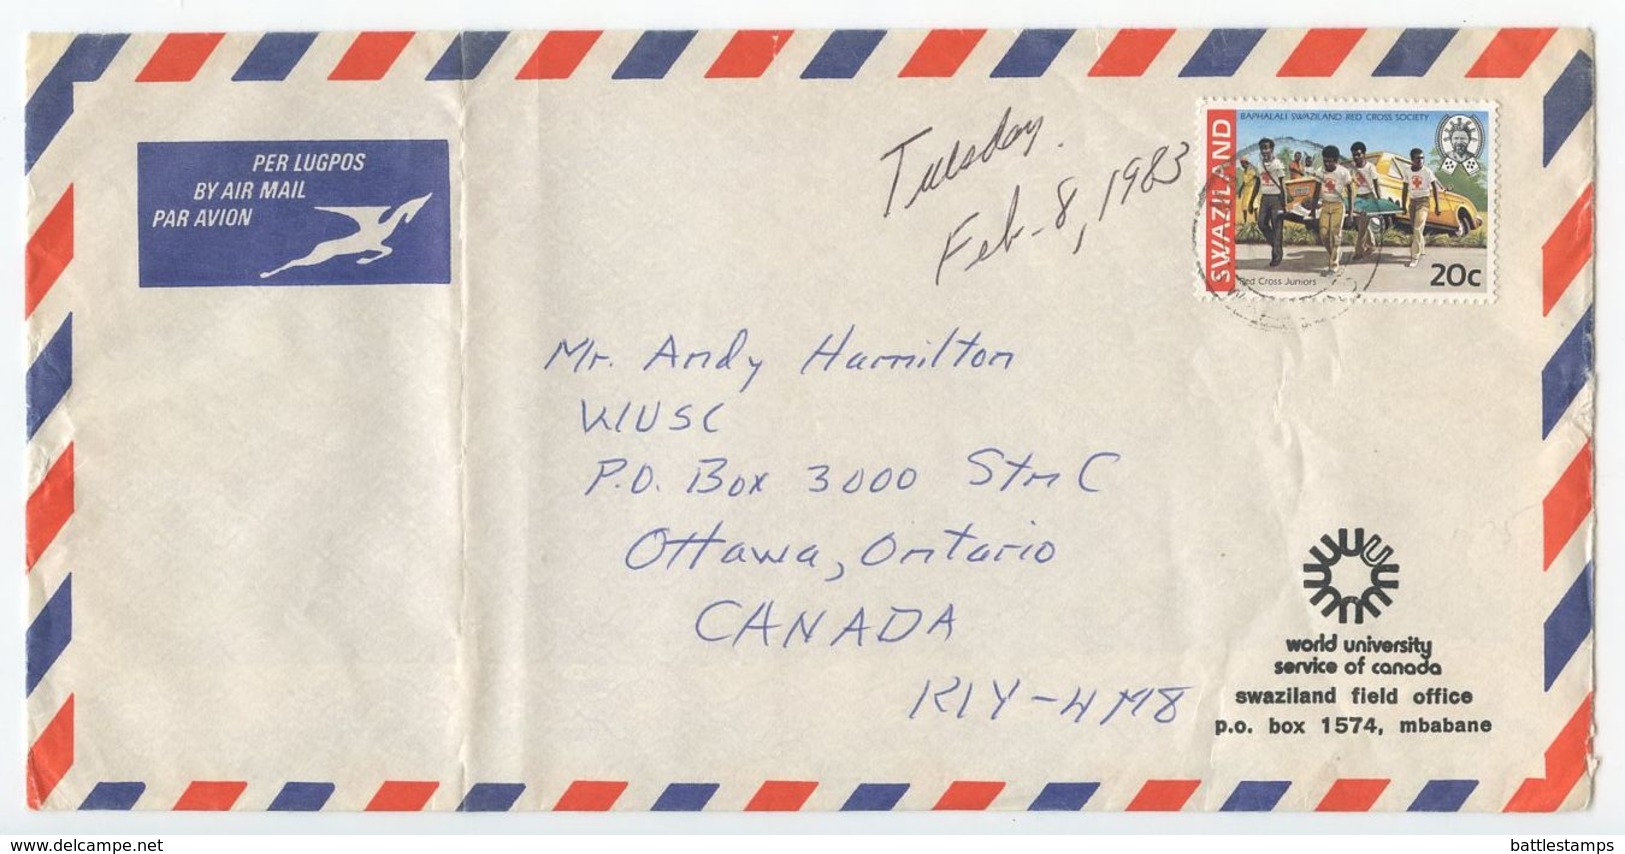 PER LUGPOS
BY AIR MAIL
PAR AVION
Tuesday.
Feb-8, 1983
SWAZILAND
BAPHALALI SWAZILAND RED CROSS SOCIETY
Red Cross Juniors
20c
Mr. Andy Hamilton
WUSC
P.O. Box 3000 Stn C
Ottawa, Ontario
CANADA
K1Y-4M8
world university
service of canada
swaziland field office
p.o. box 1574, mbabane
www.delcampe.net
battlestamps